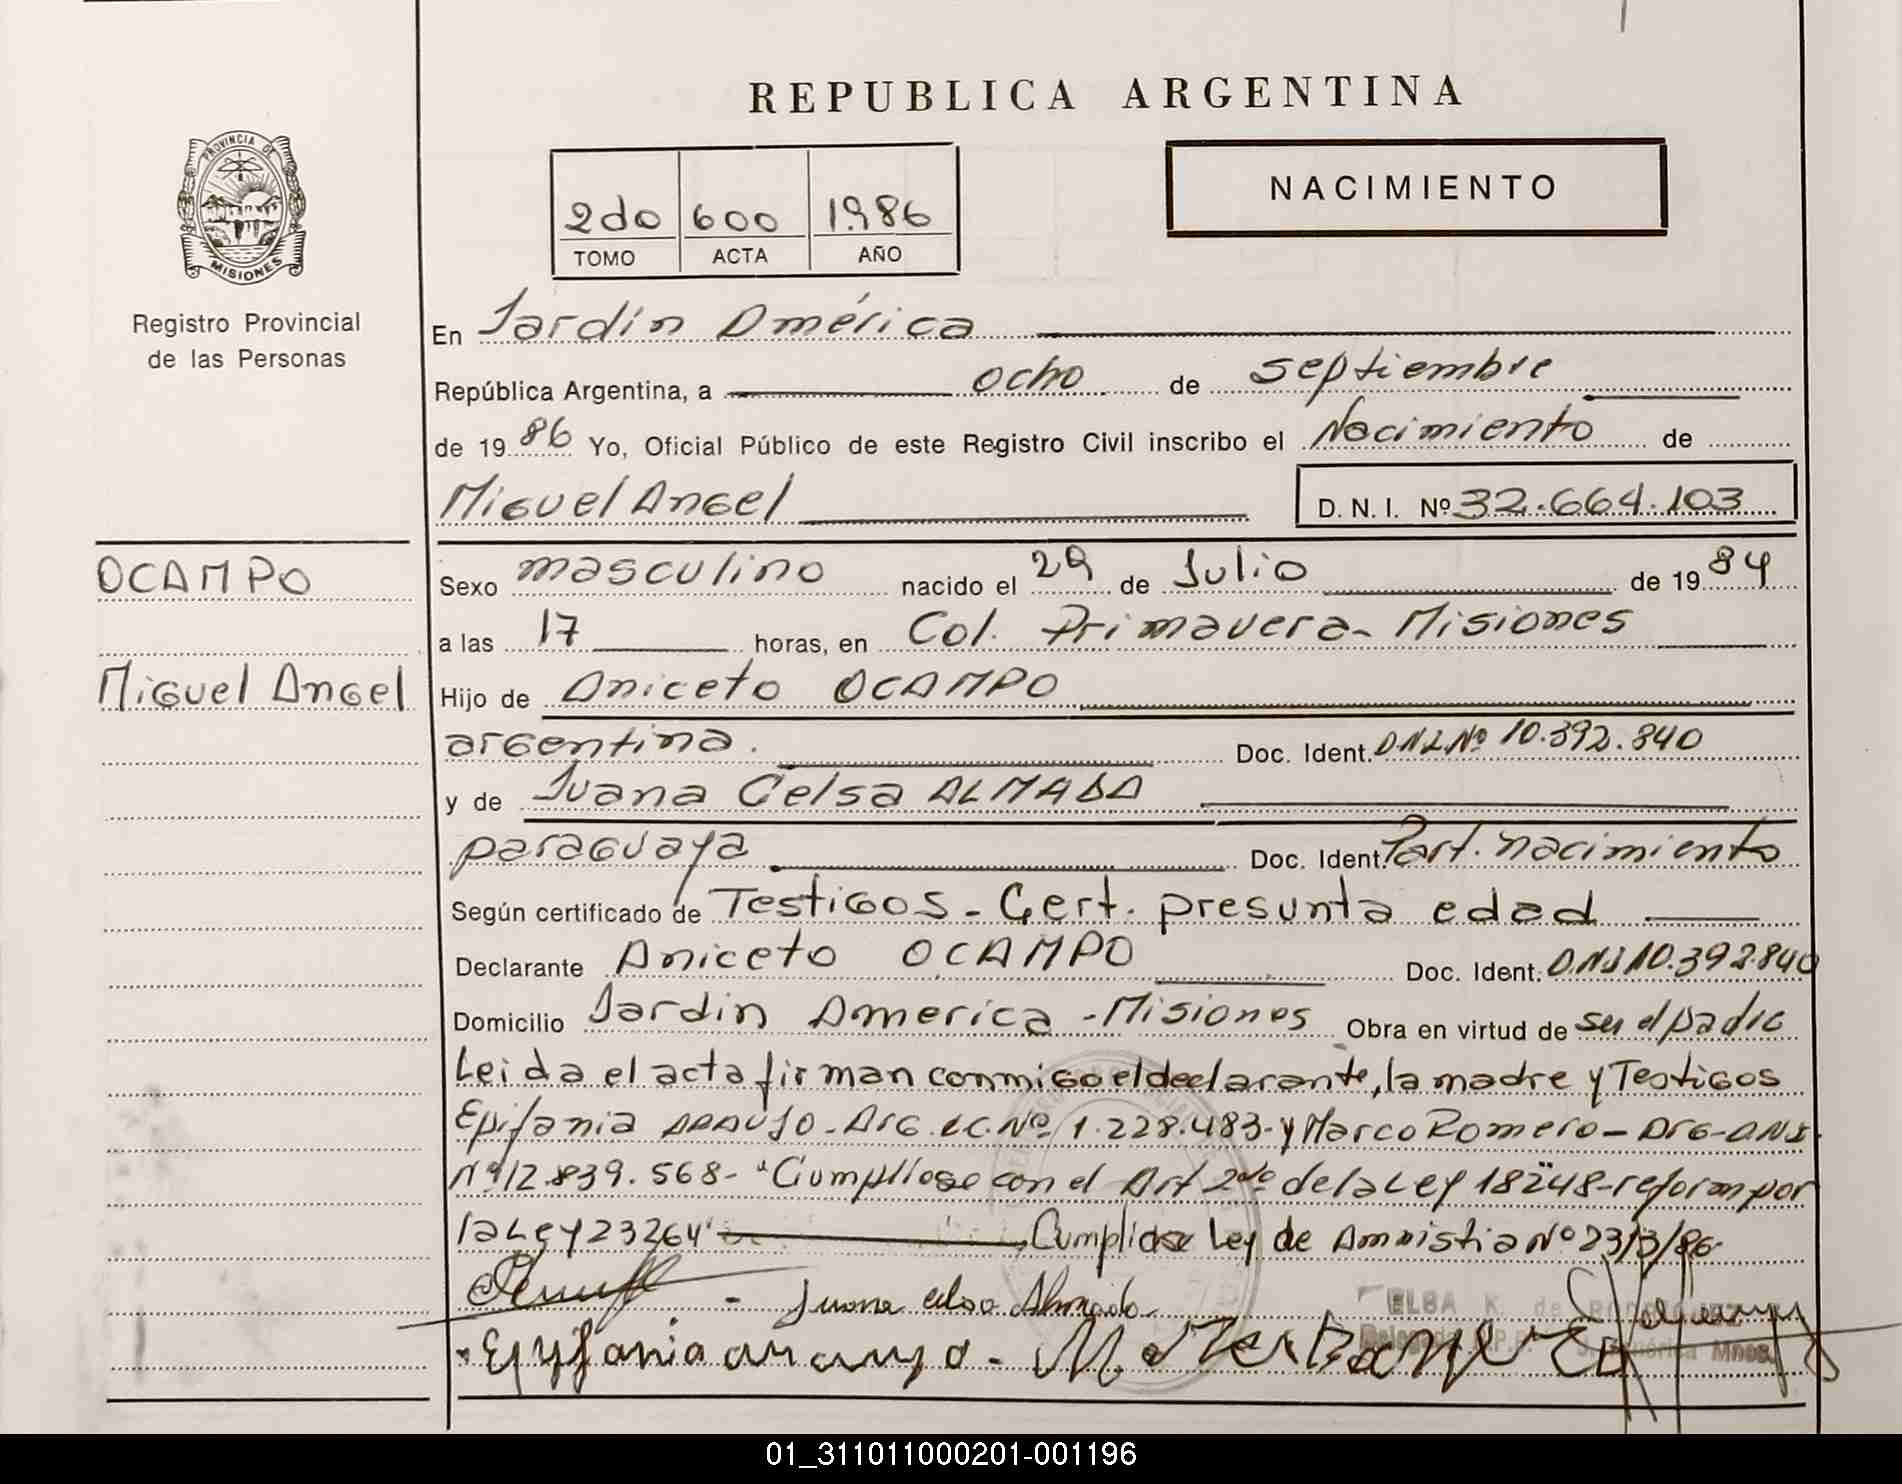 REPUBLICA ARGENTINA
PROVINCIA DE MISIONES
Registro Provincial
de las Personas
2do 600 1986
TOMO ACTA AÑO
NACIMIENTO
En Jardín América
República Argentina, a ocho de septiembre
de 1986 Yo, Oficial Público de este Registro Civil inscribo el Nacimiento de
Miguel Angel D. N. I. Nº 32.664.103
OCAMPO
Miguel Angel
Sexo masculino nacido el 29 de Julio de 1984
a las 17 horas, en Col. Primavera - Misiones
Hijo de Aniceto OCAMPO
argentina. Doc. Ident. D.N.I. Nº 10.392.840
y de Juana Celsa ALMADA
paraguaya Doc. Ident. Part. nacimiento
Según certificado de Testigos - Cert. presunta edad
Declarante Aniceto OCAMPO Doc. Ident. D.N.I 10.392.840
Domicilio Jardin America - Misiones Obra en virtud de ser el padre
Leida el acta firman conmigo el declarante, la madre y Testigos
Epifania ARAUJO - Arg. L.C. Nº 1.228.483 - y Marco Romero - Arg - D.N.I.
Nº 12.839.568 - "Cumpliose con el Art 2do de la Ley 18248 - reform por
la Ley 23264" Cumplida Ley de Amnistia Nº 23/3/86
Juana Celsa Almada
ELBA K. de
Epyfania araujo -
01_311011000201-001196